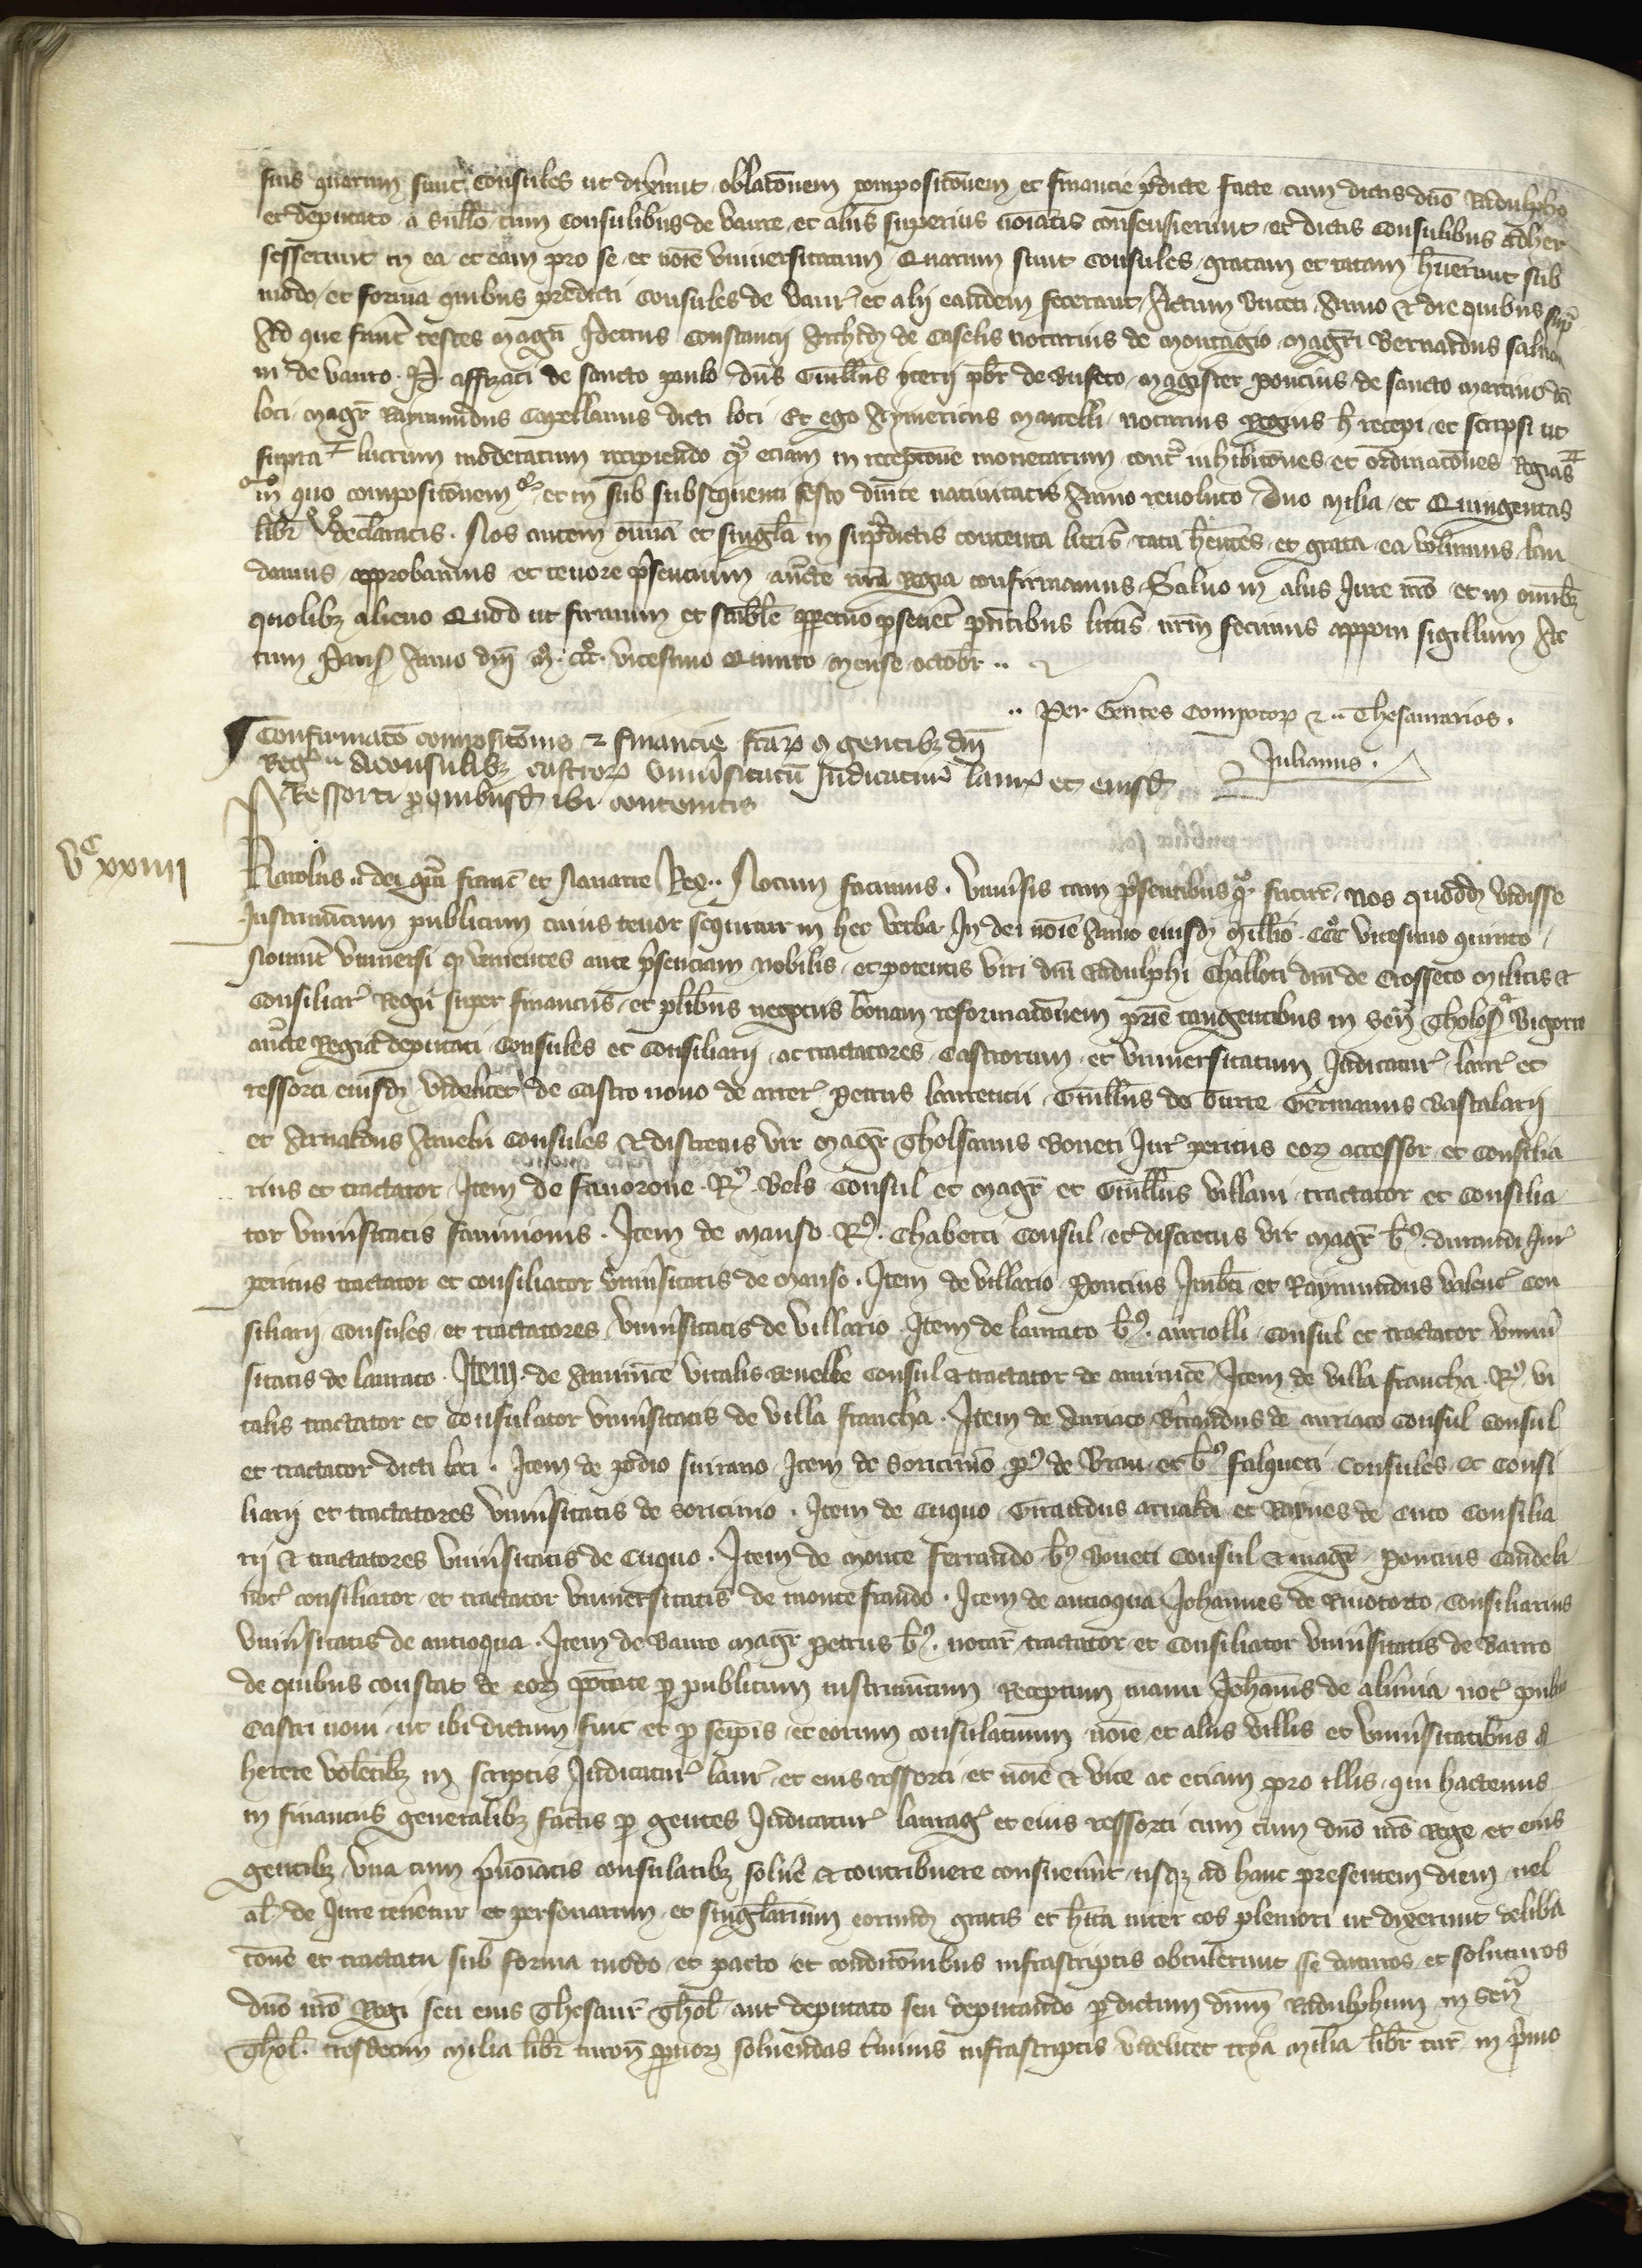 suis quarum sunt consules ut dixerunt oblatōnem compositōnem et financie p̄dicte facte cum dictis dn̄o Radulpho
et deputato a Sullo cum Consulibus de vauro et alijs superius noīatis consenserunt et dictis Consulibus adher
sesserunt in ea et eam pro se et noīe vniuersitatum Quarum sunt Consules gratam et ratam hūerunt sub
modo et forma quibus predicti Consules de vaur et alij eandem fecerant Actum Buceti Anno & die quibus sup
Ad que sunt testes magr̄ Petrus Constancij de Caselis notarius de montagio magr̄i Bernardus
in de vauro P. affizati de sancto paulo dn̄s Guill̄ms pbr̄ de Buseto magister poncius de sancto martino dc̄i
loci magr̄ Raymundus Capellanus dicti loci Et ego Aymericus Marcelli notarius Regius h̄ recepi et scripsi ut
supra lucrum moderatum recipiendo qȝ eciam in receptōne monetarum cont̄ inhibitōnes et ordinatōnes Regias
in quo compositōnem et in sub subsequenti festo dn̄ice natiuitatis Anno reuoluto duo milia et Quingentas
libr̄ declaratis. Nos autem om̄ia et singl̄a in sup̄dictis contenta litt̄is rata hēntes et grata ea volumus lau
damus approbamus et tenore p̄sencium auc̄te nr̄a Regia confirmamus Saluo in alijs Jure nr̄o et in om̄ibȝ
quolibȝ alieno Quod ut firmum et stabile ppetuo pseueret p̄sentibus litt̄is nr̄m fecimus apponi sigillum Ac
tum Paris Anno dn̄i Mͦ. CCCͦ. vicesimo Quinto mense octobr̄ ..
.. Per Gentes Compotoꝝ & .. Thesaurarios .
Confirmatō compositōnis & financie fc̄aꝝ a gentibȝ dn̄i
Julianus .
Reḡ .. & consulibȝ castroꝝ vniūsitatū Judicatur̄ laur̄ et eiusd̄
Ressorti p quibusd̄ ibi contentis
Vᶜ xxiiii
Karolus .. dei gr̄a franc̄ et Nauarre Rex .. Notum facimus . Vniūsis tam p̄sentibus qȝ futur̄ Nos quoddȝ vidisse
Instrumētum publicum cuius tenor sequitur in hec verba In dei noīe Anno eiusdȝ Mill̄io CCCͦ vicesimo quinto
Nouerīt vniuersi qȝ venientes ante p̄senciam nobilis et potentis viri dn̄i Radulphi Challoti dn̄i de Crosseto militis &
Consiliar̄ Regij super financijs et plībus negocijs bonam reformatōnem pr̄ie tangentibus in Sen̄ Tholos & Bigorr̄
auc̄te Regia deputati Consules et Consiliarij ac tractatores Castrorum et vniuersitatum Judicatur̄ laur̄ et
ressorti eiusdȝ videlicet de Castro nouo de arrer̄ Petrus laurencij Guill̄ms de burre Germanus Bastalarij
et Arnaldus Arnelij Consules & discretus vir Magr̄ Tholsanus Boneti Jur̄ peritus eoꝝ accessor et Consilia
rius et tractator Item de fanorone Rͥ. Bels Consul et magr̄ et Guill̄ms villani tractator et Consilia
tor vniūsitatis faniuionis . Item de manso Rͥ. Chaberti Consul et discretus vir magr̄ Bͥ. durandi Jur̄
peritus tractator et consiliator vniūsitatis de manso . Item de villario Poncius Imb̄ti et Raymundus valent̄ con
siliarij Consules et tractatores vniūsitatis de villario Item de laurato Bͥ. auriolli Consul et tractator vniuū
sitatis de laurato . Item . de Auinīce vitalis Beuelle Consul & tractator de auinīce Item de villa francha . Rͥ. vi
talis tractator et Consulator vniūsitatis de villa francha . Item de auriaco B̄trandus de auriaco Consul Consul
et tractator dicti loci . Item de podio siurano Item de Soricinio pͥ de Brau et Bͥ falqueti Consules et Consi
liarij et tractatores vniūsitatis de soricinio . Item de Cuquo Giraudus arnaldi et Rayn̄es de Cuco Consilia
rij & tractatores vniūsitatis de Cuquo . Item de monte ferrando Bͥ Boneti Consul & magr̄ Poncius Candeli
not̄ consiliator et tractator vniuersitatis de monte ferando . Item de antioqua Johannes de Riuotorto Consiliarius
vniūsitatis de antioqua . Item de vauro magr̄ Petrus Bͥ. notar̄ tractator et Consiliator vniūsitatis de vauro
de quibus constat de eoꝝ potāte p publicum instrumētum Receptum manu Joh̄anis de alimia not̄ publici
Castri noui ut ibi dictum fuit et p seipīs et eorum consulatuum noīe et alijs villis et vniūsitatibus ad
herere volētibȝ in scriptis Judicatur̄ laur̄ et eius ressorti et noīe & vice ac eciam pro illis qui hactenus
in financijs generalibȝ factis p gentes Judicatur̄ lauraḡ et eius ressorti cum cum dn̄o nr̄o Rege et eius
gentibȝ vna cum p̄noīatis consulatibȝ soluē & contribuere consueuerūt vsqȝ ad hanc presentem diem vel
al̄ de Jure tenētur et personarum et singl̄arium eorundȝ gratis et h̄ita inter eos pleniori ut dixerunt deliba
tōne et tractatu sub forma modo et pacto et conditōnibus infrascriptis obtulerunt se daturos et soluturos
dn̄o nr̄o Regi seu eius Thesaur̄ Thol̄ aut deputato seu deputando p dictum dn̄m Radulphum in Sen̄
Thol̄. tresdecim milia libr̄ turon̄ puoꝝ soluendas t̄minis infrascriptis videlicet tria milia libr̄ tur̄ in p̄mo